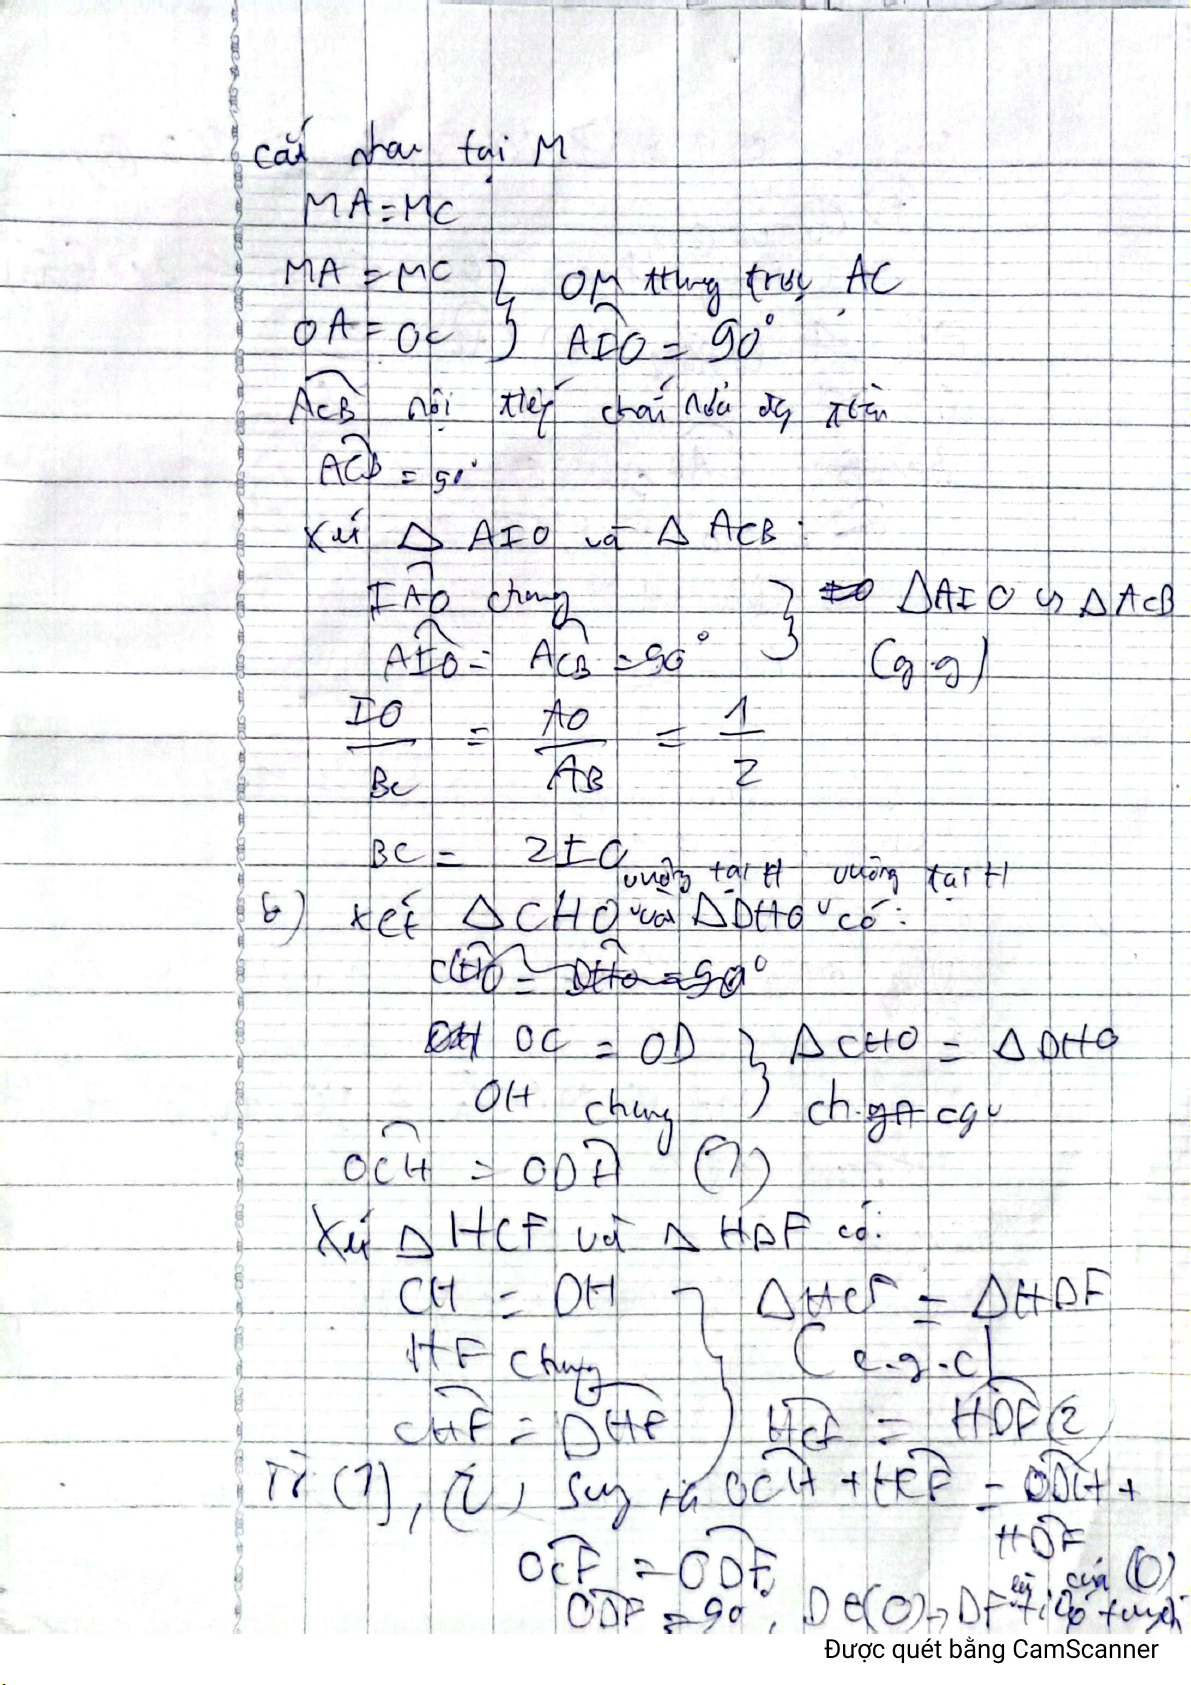 cắt nhau tại M
MA = MC
MA = MC } OM trung trực AC
OA = OC } AIO = 90°
ACB nội tiếp chắn nửa đg tròn
ACB = 90°
Xét △ AIO và △ ACB :
IAO chung } △AIO ∽ △ACB
AIO = ACB = 90° (g.g)
IO/BC = AO/AB = 1/2
BC = 2IO
b) Xét △CHO vuông tại H và △DHO vuông tại H có :
CHO = DHO = 90°
OH OC = OD } △CHO = △DHO
OH chung ch.gn cgv
OCH = ODH (1)
Xét △HCF và △HDF có:
CH = DH △HCF = △HDF
HF chung (c.g.c)
CHF = DHF HCF = HDF (2)
Từ (1), (2) suy ra OCH + HCF = ODH +
HDF
OCF = ODF
ODF = 90°, D ∈ (O) → DF là tiếp tuyến của (O)
Được quét bằng CamScanner